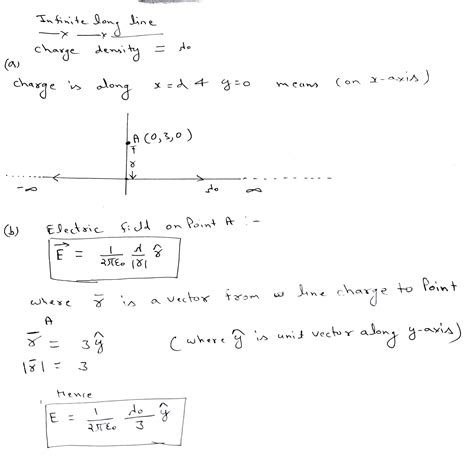 Infinite long line
charge density = λo
(a)
charge is along x=d & y=0 means (on x-axis)
A (0,3,0)
r
-∞ λo ∞
(b) Electric field on Point A :-
E⃗ = 1/2πε₀ λ/|r| r̂
where r̄ is a vector from line charge to Point
A
r̄ = 3ŷ (where ŷ is unit vector along y-axis)
|r̄| = 3
Hence
E = 1/2πε₀ λo/3 ŷ